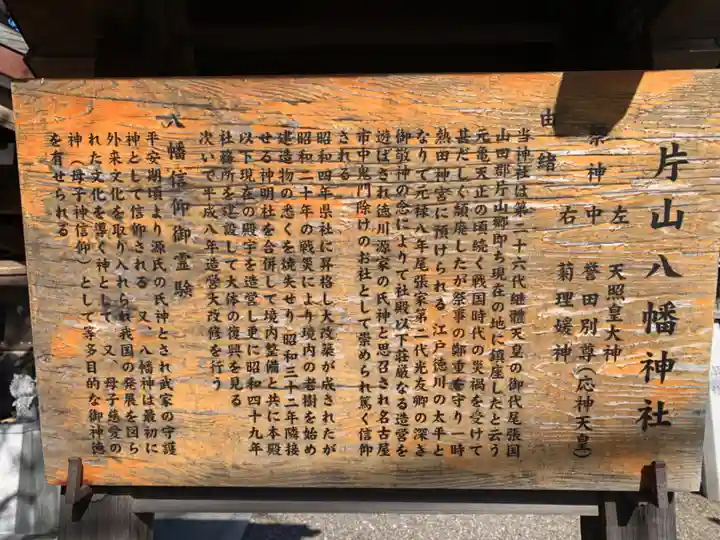 片山八幡神社
祭神 左 天照皇大神
中 誉田別尊(応神天皇)
右 菊理媛神
由緒
当神社は第二十六代継體天皇の御代尾張国
山田郡片山郷即ち現在の地に鎮座したと云う
元亀天正の頃続く戦国時代の災禍を受けて
甚だしく頽廃したが祭事の鄭重を守り一時
熱田神宮に預けられる 江戸徳川の太平と
なりて元禄八年尾張家第二代光友卿の深き
御敬神の念によりて社殿以下荘厳なる造営を
遊ばされ徳川源家の氏神と思召され名古屋
市中鬼門除けのお社として崇められ篤く信仰
される
昭和四年県社に昇格し大改築が成されたが
昭和二十年の戦災により境内の老樹を始め
建造物の悉くを焼失せり 昭和三十二年隣接
せる神明社を合併して境内整備と共に本殿
以下現在の殿宇を造営し更に昭和四十九年
社務所を建設して大体の復興を見る
次いで平成八年造営大改修を行う
八幡信仰御霊験
平安期頃より源氏の氏神とされ武家の守護
神として信仰される 又、八幡神は最初に
外来文化を取り入れられ我国の発展を図ら
れた文化を導く神として、又、母子慈愛の
神(母子神信仰)として等多目的な御神徳
を有せられる